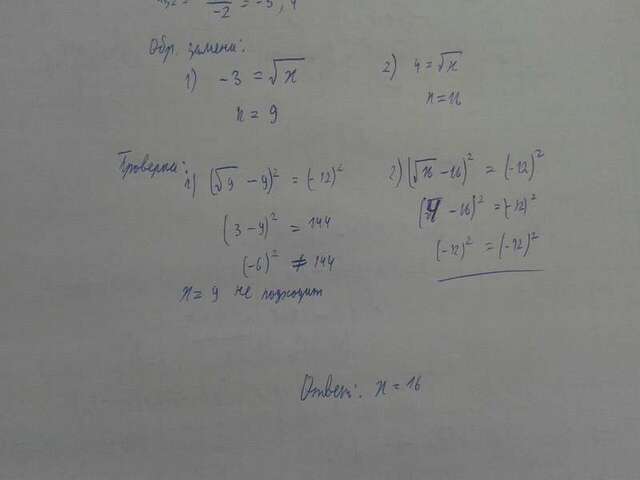 -2 = -3; 4
Обр. замена:
1) -3 = √x
x = 9
2) 4 = √x
x = 16
Проверка:
1) (√9 - 9)² = (-12)²
(3 - 9)² = 144
(-6)² ≠ 144
x = 9 не подходит
2) (√16 - 16)² = (-12)²
(4 - 16)² = (-12)²
(-12)² = (-12)²
Ответ: x = 16